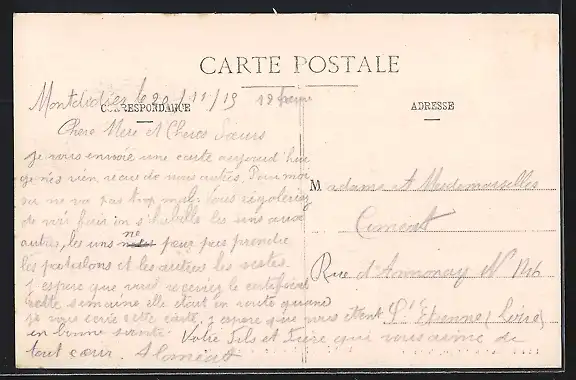 CARTE POSTALE
CORRESPONDANCE
ADRESSE
Montdidier le 20/11/19
Chere Mere et Cheres Soeurs
je vous envoie une carte aujourd'hui
je n'es rien recu de vous autres. Pour moi
sa ne va pas trop mal. Vous rigoleriez
de voir s'habille les uns aux
autres, les uns pour pas prendre
les pantalons et les autres les vestes.
J'espere que vous recevrez le certificat
cette semaine elle etait en route quand
je vous ecris cette carte. J'espere que vous etent
en bonne sante. Votre Fils et Frere qui vous aime de
tout coeur. A
Madame et Mesdemoiselles
Rue d'Annonay N
St Etienne (Loire)